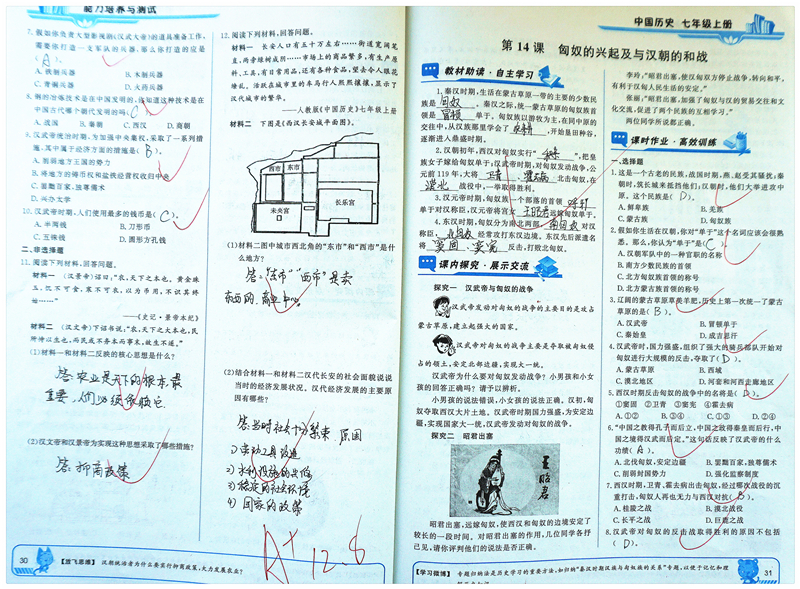 能力培养与测试
7. 假如你负责大型影视剧《汉武大帝》的道具准备工作,
需要你打造一支军队的兵器,那么你打造的应是
( A )。
A. 铁制兵器 B. 木制兵器
C. 青铜兵器 D. 火药兵器
8. 钢的冶炼技术是在中国发明的,你知道这种技术是在
中国古代哪个朝代发明的吗( C )
A. 战国 B. 秦朝 C. 西汉 D. 商朝
9. 汉武帝统治时期,为加强中央集权,采取了一系列措
施,其中属于经济方面的措施是( B )。
A. 削弱地方王国的势力
B. 将地方的铸币权和盐铁经营权收归中央
C. 罢黜百家,独尊儒术
D. 兴办太学
10. 汉武帝时期,人们使用最多的钱币是( C )。
A. 半两钱 B. 刀形币
C. 五铢钱 D. 圆形方孔钱
二、非选择题
11. 阅读下列材料,回答问题。
材料一 《汉景帝》诏曰:“农,天下之本也。黄金珠
玉,饥不可食,寒不可衣,以为币用,不识其终
始……”
——《史记·景帝本纪》
材料二 《汉文帝》下诏书说,“农,天下之大本也,民
所恃以生也,而民或不务本而事末,故生不遂。”
(1)材料一和材料二反映的核心思想是什么?
答:农业是天下的根本,最
重要,人们必须依赖它.
(2)汉文帝和汉景帝为实现这种思想采取了哪些措施?
答:抑商政策
30
【放飞思维】 汉朝统治者为什么要实行抑商政策,大力发展农业?
12. 阅读下列材料,回答问题。
材料一 长安人口有五十万左右……街道宽阔笔
直,两旁绿树成荫……市场上的商品繁多,有生产原
料、工具,有日常用品,还有各种食品,望去令人眼花
缭乱。活跃在城市里的车马行人熙熙攘攘,显示了
汉代城市的繁华。
——人教版《中国历史》七年级上册
材料二 下图是《西汉长安城平面图》。
西市 东市
未央宫 长乐宫
(1)材料二图中城市西北角的“东市”和“西市”是什
么地方?
答:“东市”“西市”是卖
东西的,商业中心。
(2)结合材料一和材料二汉代长安的社会面貌说说
当时的经济发展状况。汉代经济发展的主要原
因有哪些?
答:当时社会十分繁荣 原因
1) 劳动工具改造
2) 水利设施的兴修
3) 稳定的社会环境
4) 国家的政策
A+ 12.6
中国历史 七年级上册
第 14 课 匈奴的兴起及与汉朝的和战
教材助读·自主学习
1. 秦汉时期,生活在蒙古草原一带的主要的少数民
族是 匈奴 。秦汉之际,统一蒙古草原的匈奴族首
领是 冒顿 单于。匈奴族以游牧为主,在同中原的
交往中,从汉族那里学会了 ,开始垦田种谷,
逐渐进入鼎盛时期。
2. 汉朝初年,西汉对匈奴实行“ ”,把皇
族女子嫁给匈奴单于;汉武帝时期,对匈奴发动战争,公
元前119年,大将 卫青 、 霍去病 北击匈奴,在
漠北 战役中,一举取得胜利。
3. 汉元帝时期,匈奴族一个部落的首领 呼韩
单于对汉称臣,汉元帝将宫女 王昭君 远嫁匈奴单于。
4. 东汉时期,匈奴分为南北两部, 南匈奴 对汉
称臣, 北匈奴 经常攻打东汉边境。东汉先后派遣名
将 窦固 、 窦宪 反击,打败北匈奴。
课内探究·展示交流
探究一 汉武帝与匈奴的战争
汉武帝发动对匈奴的战争的主要目的是攻占
蒙古草原,建立起强大的国家。
汉武帝对匈奴的战争主要是夺取被匈奴侵
占的领土,安定北部边疆,实现大一统。
汉武帝为什么要对匈奴发动战争?小男孩和小女
孩的回答正确吗?请予以辨析。
小男孩的说法错误,小女孩的说法正确。汉初,匈
奴夺取西汉大片土地。汉武帝时期国力强盛,为安定边
疆,实现国家大一统,汉武帝发动对匈奴的战争。
探究二 昭君出塞
王昭君
昭君出塞,远嫁匈奴,使西汉和匈奴的边境安定了
较长的一段时间。对昭君出塞的作用,几位同学各抒
己见,请你评判他们的说法是否正确。
李玲,“昭君出塞,使汉匈双方停止战争,转向和平,
有利于汉匈人民生活的安定。”
张丽,“昭君出塞,加强了匈奴与汉的贸易往来和文
化交流,促进了两个民族的互相学习。”
两位同学所说都正确。
课时作业·高效训练
一、选择题
1. 这是一个古老的民族,战国时期,燕、赵受其骚扰;秦
朝时,筑长城来抵挡他们;汉朝时,他们大举进攻中
原。这个民族是( D )。
A. 鲜卑族 B. 羌族
C. 蒙古族 D. 匈奴族
2. 假如你生活在汉朝,你对“单于”这个名词应该会很熟
悉。那么,你认为“单于”是( C )。
A. 汉朝军队中的一种官职的名称
B. 南方少数民族的首领
C. 北方匈奴族首领的称号
D. 北方蒙古族首领的称号
3. 辽阔的蒙古草原草美羊肥,历史上第一次统一了蒙古
草原的是( B )。
A. 汉武帝 B. 冒顿单于
C. 秦始皇 D. 成吉思汗
4. 汉武帝时,国力强盛,组织了强大的骑兵部队开始对
匈奴进行大规模的反击,夺取了( D )。
A. 蒙古草原 B. 西域
C. 漠北地区 D. 河套和河西走廊地区
5. 西汉时期反击匈奴的战争中的名将是( D )。
①窦固 ②卫青 ③窦宪 ④霍去病
A. ①② B. ③④ C. ①③ D. ②④
6. “中国之教得孔子而后立,中国之政得秦皇而后行,中
国之境得汉武而后定。”这句话反映了汉武帝的什么
功绩( A )。
A. 北伐匈奴,安定边疆 B. 罢黜百家,独尊儒术
C. 削弱封国势力 D. 强化监察制度
7. 西汉时期,卫青、霍去病出击匈奴,经过哪次战役的沉
重打击,匈奴人再也无力与西汉对抗( B )。
A. 桂陵之战 B. 漠北战役
C. 长平之战 D. 巨鹿之战
8. 汉武帝对匈奴的反击战取得胜利的原因不包括
( D )。
【学习微博】 专题归纳法是历史学习的重要方法,如归纳“秦汉时期汉族与匈奴族的关系”专题,以便于记忆和理
31